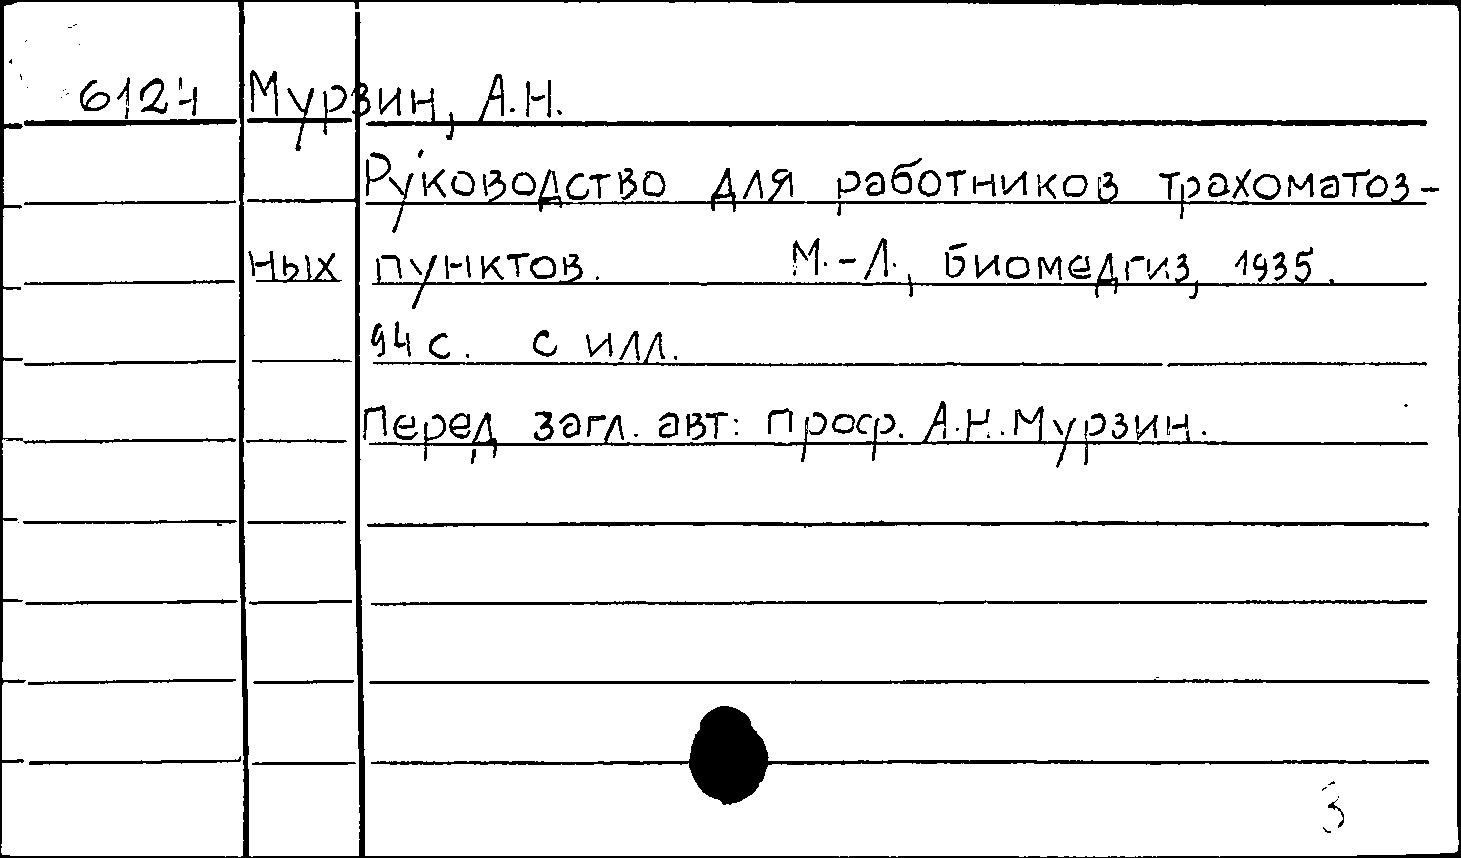 6124 Мурзин, А.Н.
Руководство для работников трахоматоз-
ных пунктов. М.-Л., биомедгиз, 1935.
94 с. с илл.
Перед загл. авт: проф. А.Н.Мурзин.
3